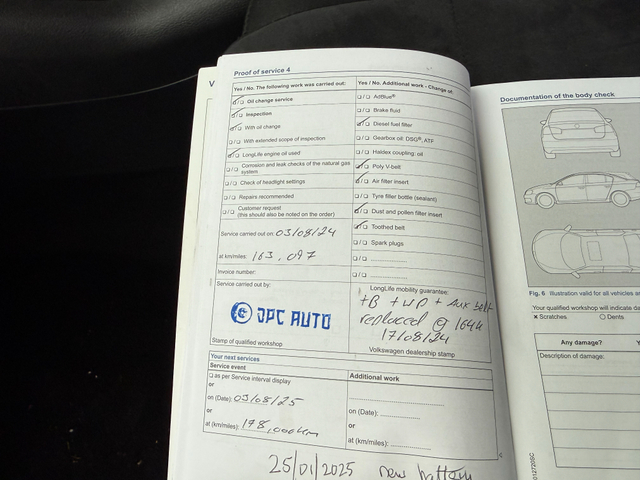 Proof of service 4
Yes / No. The following work was carried out:
Oil change service
Inspection
With oil change
With extended scope of inspection
LongLife engine oil used
Corrosion and leak checks of the natural gas system
Check of headlight settings
Repairs recommended
Customer request
(this should also be noted on the order)
Service carried out on: 03/08/24
at km/miles: 163,097
Invoice number:
Service carried out by:
JPC AUTO
Stamp of qualified workshop
Yes / No. Additional work - Change of:
AdBlue®
Brake fluid
Diesel fuel filter
Gearbox oil: DSG®, ATF
Haldex coupling: oil
Poly V-belt
Air filter insert
Tyre filler bottle (sealant)
Dust and pollen filter insert
Toothed belt
Spark plugs
LongLife mobility guarantee:
TB + WP + Aux belt
replaced @ 164k
17/08/24
Volkswagen dealership stamp
Your next services
Service event
as per Service interval display
or
on (Date): 03/08/25
or
at (km/miles): 178,000km
Additional work
on (Date):
or
at (km/miles):
25/01/2025 new battery
Documentation of the body check
Fig. 6 Illustration valid for all vehicles
Your qualified workshop will indicate
× Scratches ○ Dents
Any damage?
Description of damage: